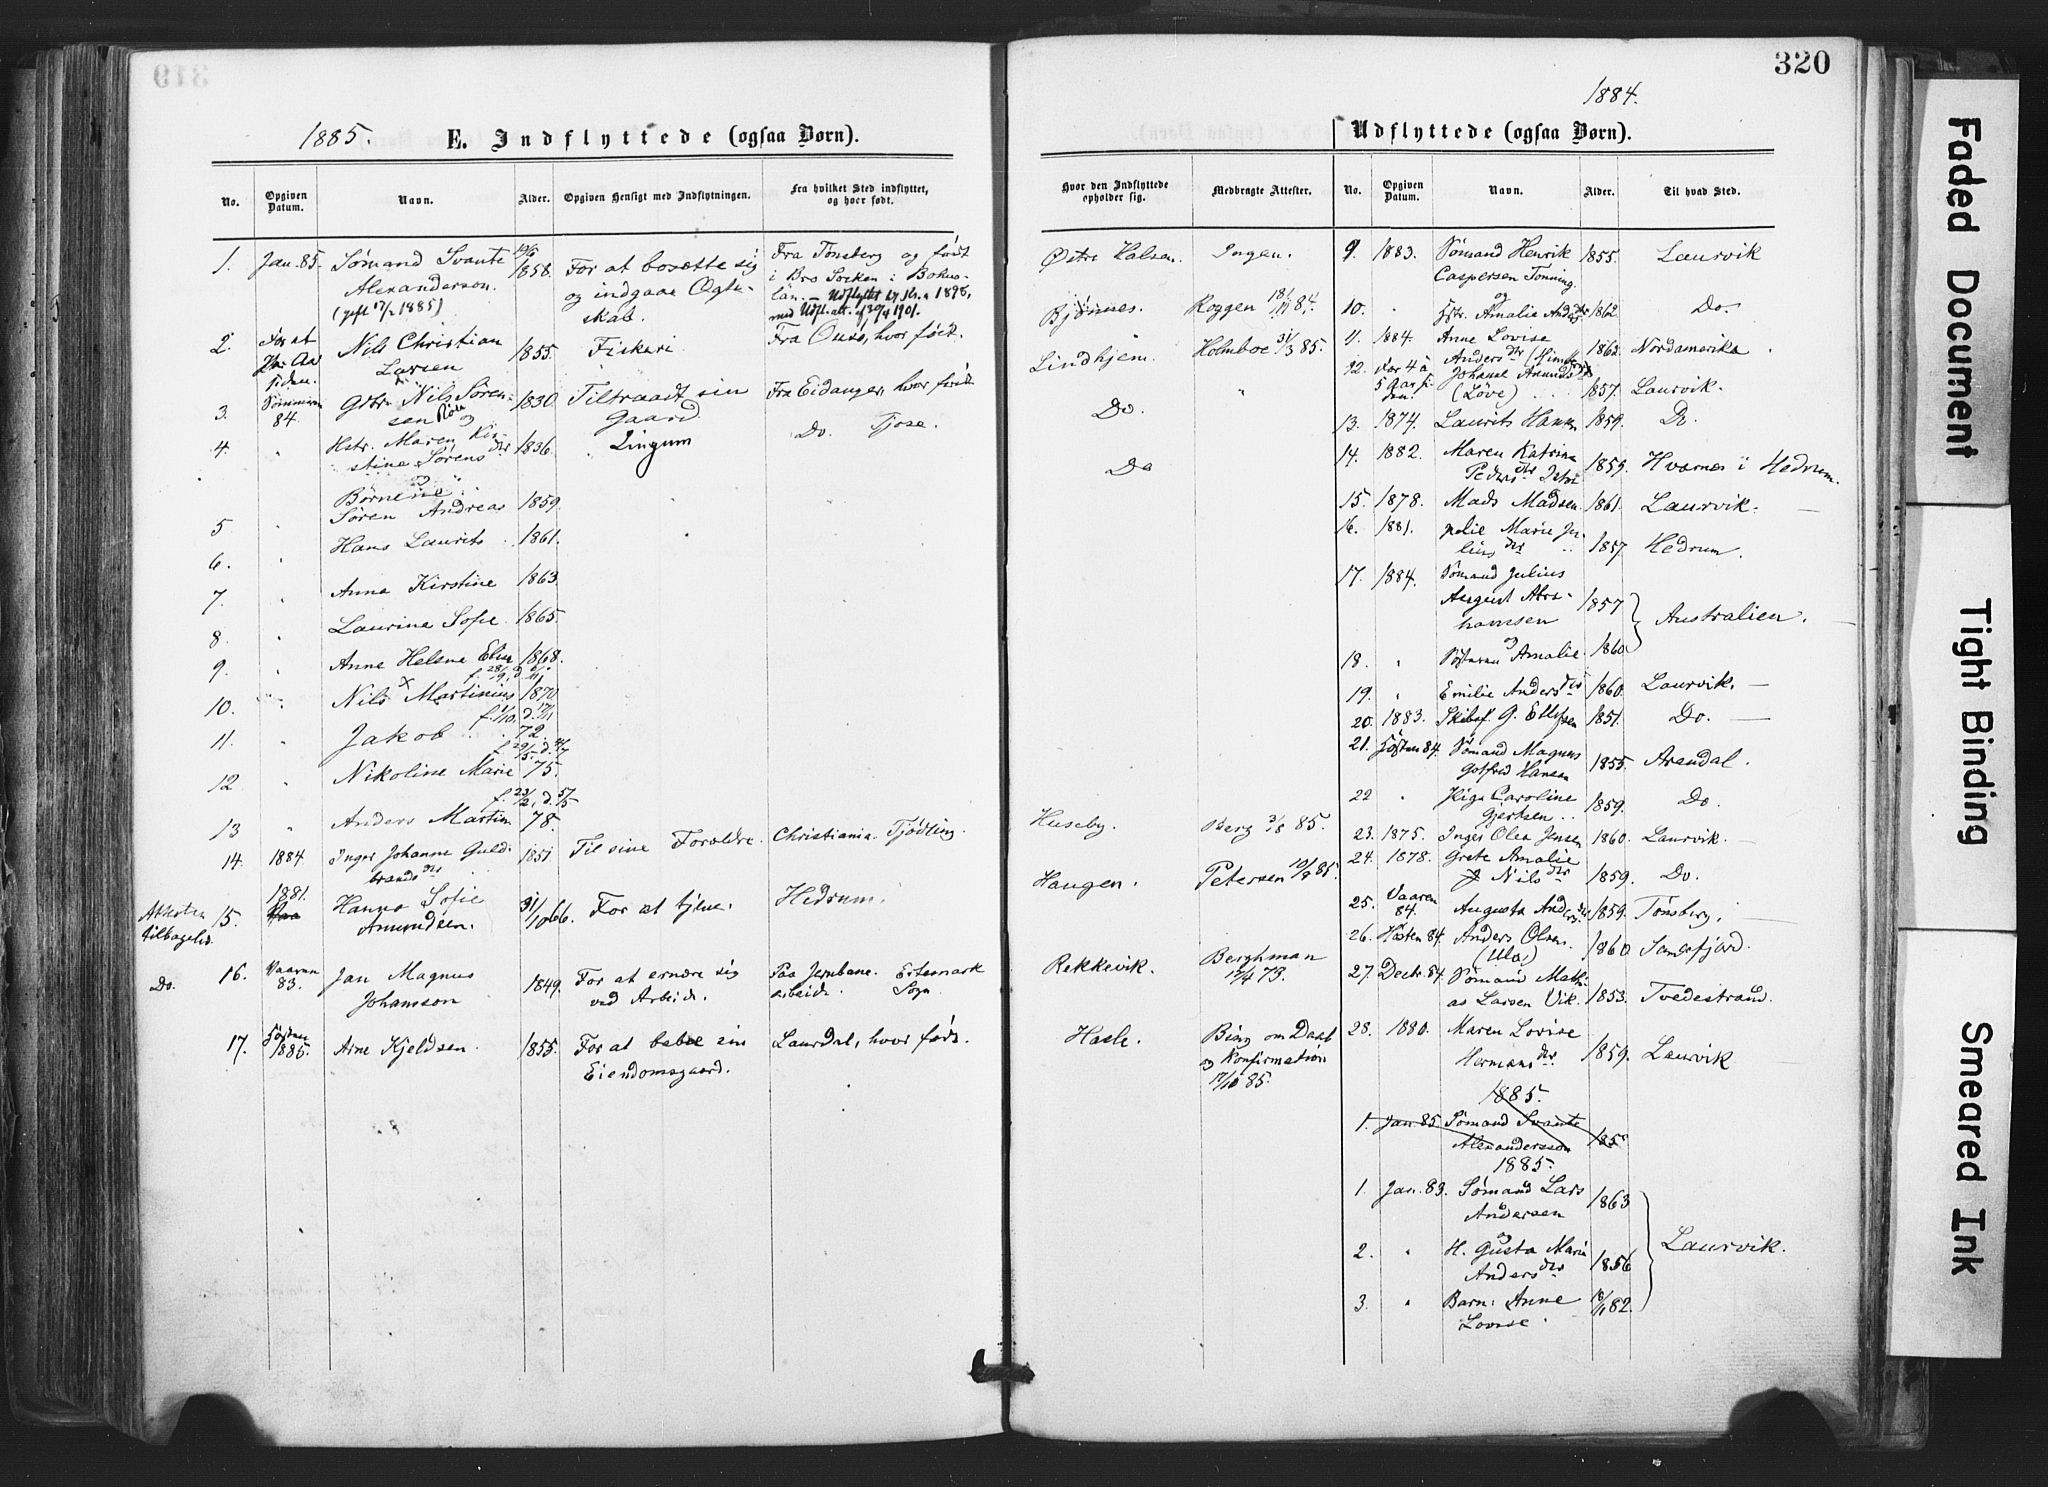 320
1885.
E. Indflyttede (ogsaa Børn).
No.
Opgiven Datum.
Navn.
Alder.
Opgiven Hensigt med Indflytningen.
Fra hvilket Sted indflyttet, og hvor født.
1. Jan. 85. Sømand Svante 1858. For at bosætte sig Fra Tønsberg og født
Alexanderson. og indgaae Ægte- i Bro Socken i Bohus-
(gift 17/2 1885) skab. län. — Udflyttet 1898,
med Udfl. att. af 30/4 1901.
2. For at Nils Christian 1855. Fiskeri. Fra Ousø, hvor født.
Par Aar siden. Larsen
3. Sommeren 84. Gbr. Nils Søren- 1830 Tiltraadt sin Fra Eidanger, hvor født
sen og Gaard
4. " Hstr. Maren Kir- 1836. Lingum Do. Tjose.
stine Sørensdtr
Børnene:
5 " Søren Andreas 1859.
6. " Hans Laurits 1861.
7. " Anna Kirstine 1863.
8. " Laurine Sofie 1865.
9. " Anne Helene 1868.
10. " Nils Martinius 1870
11. " Jakob 72.
12 " Nikoline Marie 75.
13 " Anders Martin 78.
14. 1884 Inger Johanne Guld- 1851. Til sine Forældre. Christiania. Tjødling.
brandsdtr
Attesten tilbagelev. 15. 1881. Hanna Sofie 31/10 66. For at tjene. Hedrum.
Amundsen.
Do. 16. Vaaren 83. Jan Magnus 1849. For at ernære sig Paa Jernbane-
Johansson ved Arbeide. arbeide. Sogn.
17. Høsten 1885. Arne Kjeldsen. 1855. For at bebo sin Laurdal, hvor født.
Eiendomsgaard.
1884.
Udflyttede (ogsaa Børn).
Hvor den Indflyttede opholder sig.
Medbragte Attester.
Østre Halsen. Ingen.
Bjønnes. Roggen 84.
Lindhjem. Holmboe 31/3 85.
Do. "
Do
Huseby. Berg 3/8 85.
Haugen. Petersen 10/8 85.
Rekkevik. Berghman
17/4 73.
Hasle. Bing om Daab
og Konfirmation
17/10 85.
No.
Opgiven Datum.
Navn.
Alder.
Til hvad Sted.
9. 1883. Sømand Henrik 1855. Laurvik
Caspersen Tønning.
og
10. " Hstr. Amalie Andersdtr 1862 Do.
11. 1884. Anne Lovise
Andersdtr 1863. Nordamerika.
12. For 4 à Johanne Amundsdtr
5 Aar si- (Löve) 1857. Laurvik.
den.
13. 1874. Laurits Hansen 1859. Do.
14. 1882. Maren Katrine
Pedersdtr 1859. Hvarnes i Hedrum.
15. 1878. Mads Madsen 1861. Laurvik. —
16. 1881. Marie Ju-
liusdtr 1857. Hedrum.
17. 1884. Sømand Julius
August Abra- 1857
hamsen Australien. —
og
18. " Hustruen Amalie 1860
19. " Emilie Andersdtr 1860. Laurvik. —
20. 1883. Skibsf. G. Ellefsen 1851. Do. —
21. Høsten 84. Sømand Magnus
Gotfred Hansen 1855. Arendal.
22 " Caroline
Gjertsen 1859. Do.
23. 1875. Inger Olea Jensen 1860. Laurvik. —
24. 1878. Grete Amalie
Nilsdtr 1859. Do.
25. Vaaren 84. Augusta Andersdtr 1859. Tønsberg. —
26. Høsten 84. Anders Olsen 1860 Sandefjord.
(Ula)
27. Decbr. 84. Sømand Mathi-
as Larsen Vik. 1853. Tvedestrand.
28. 1880. Maren Lovise
Hermansdtr 1859. Laurvik
1885.
1. Jan. 85 Sømand Svante
Alexandersson 185
1885.
1. Jan. 83. Sømand Lars 1863
Andersen
og
2. " H. Gusta Maria 1856 Laurvik.
Andersdtr
3. " Barn: Anne 82.
Lovise.
Faded Document
Tight Binding
Smeared Ink